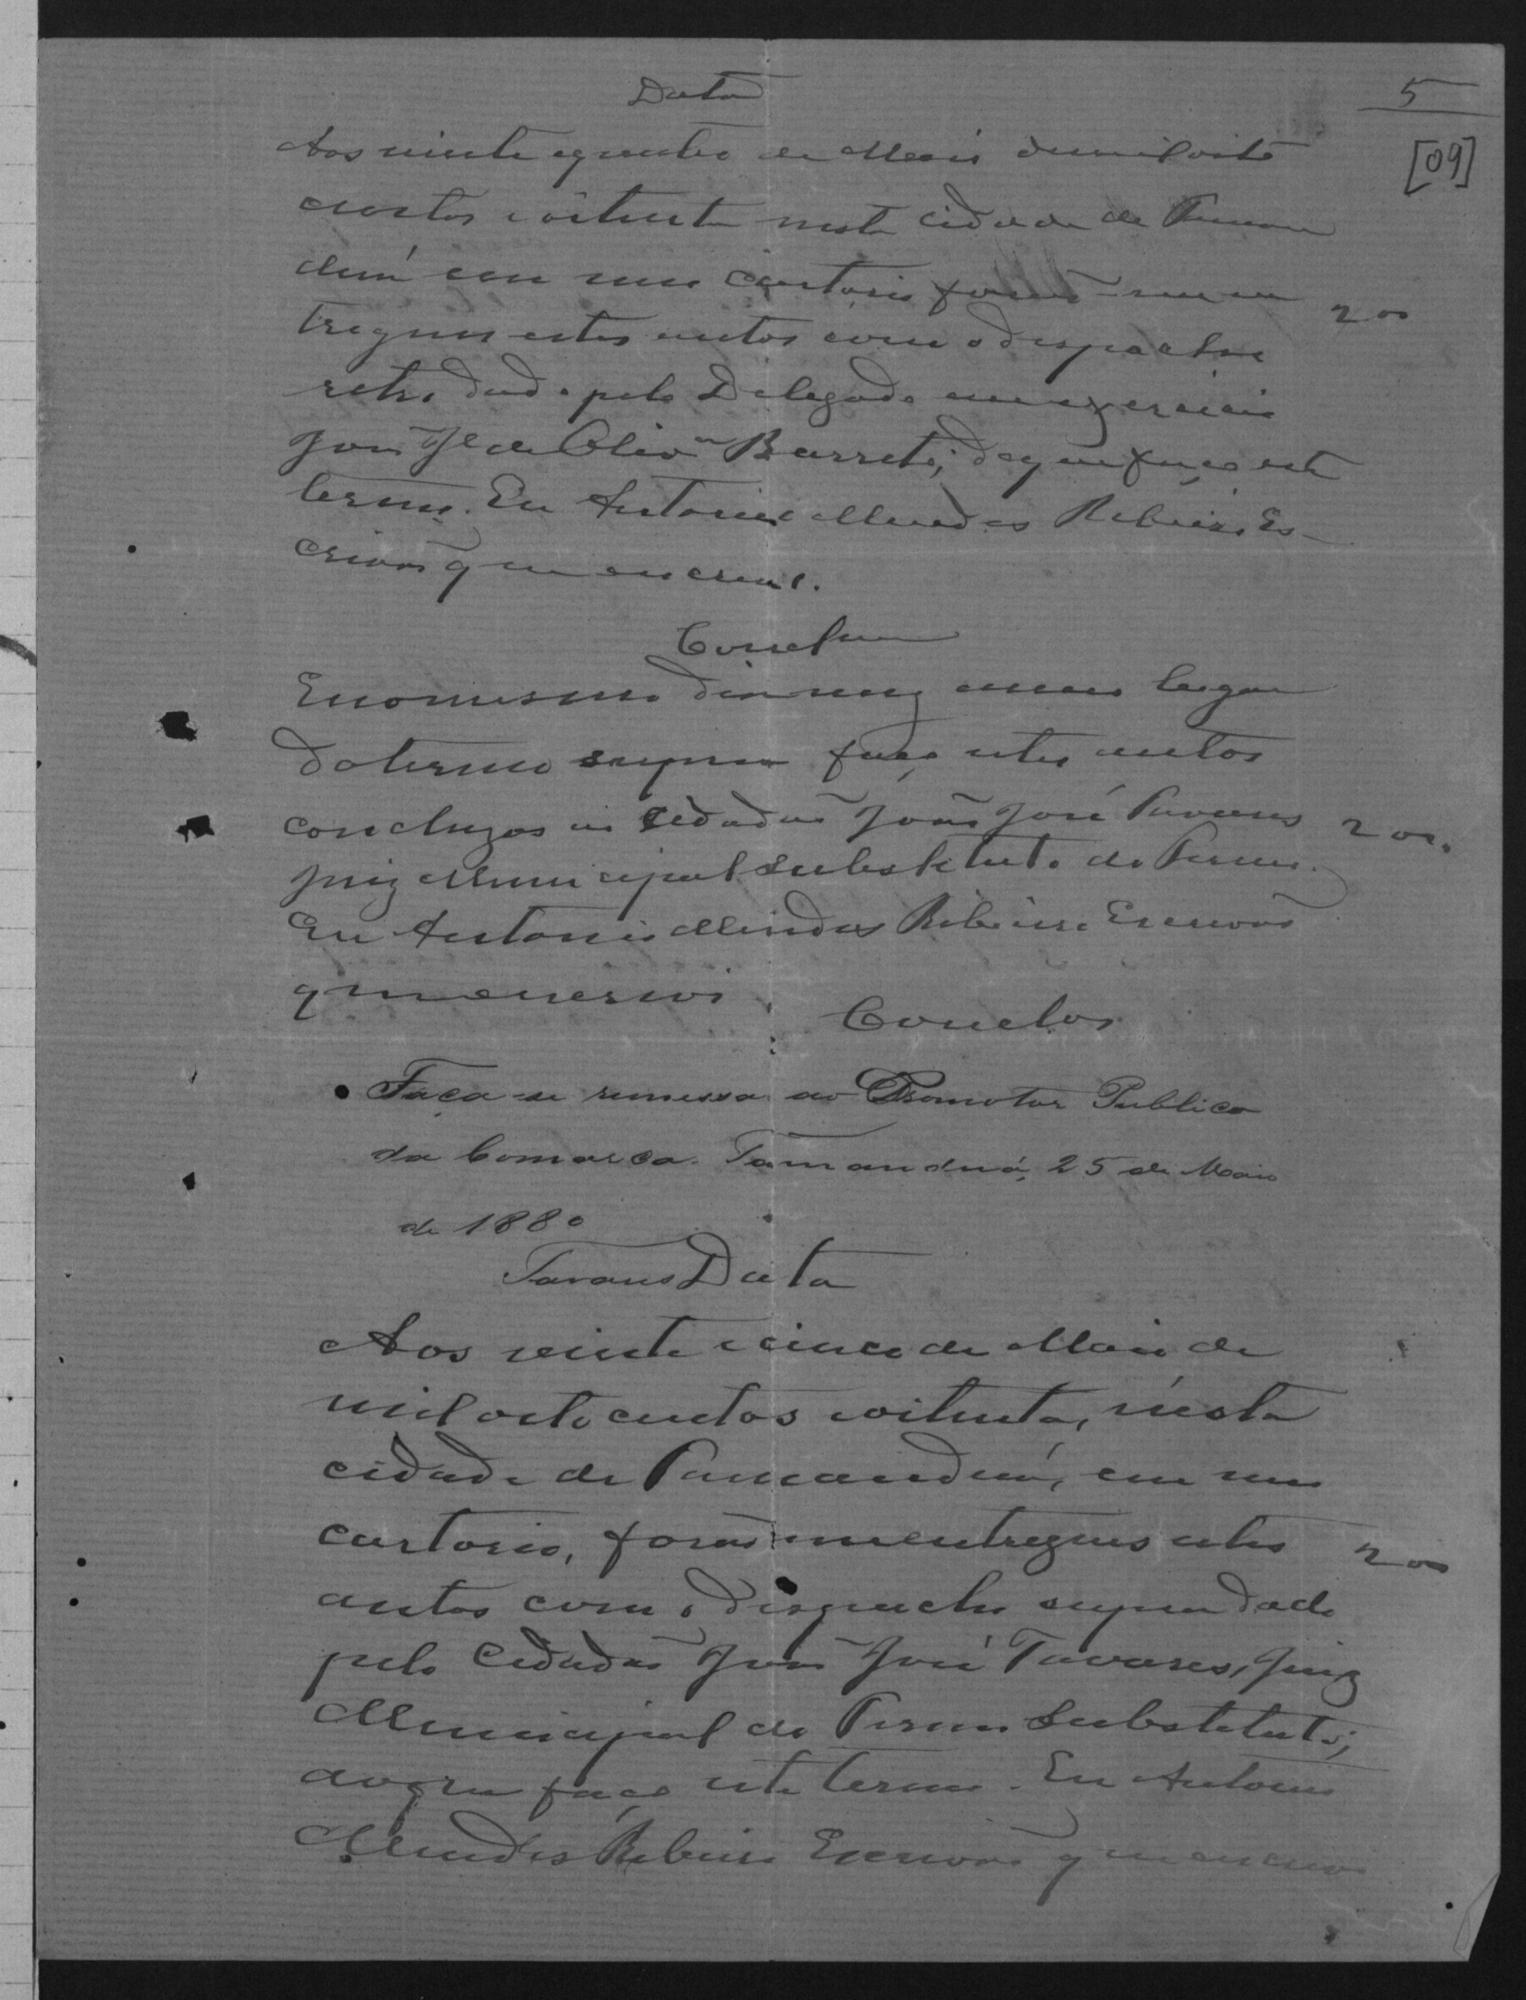 Data
5
[09]
Aos vinte e quatro de Maio de mil oito
centos e oitenta nesta cidade de Taman
duá em meu cartorio forão-me en
200
tregues estes autos com o despacho
retro dado pelo Delegado em exercicio
José de Olivra Barreto; do que faço este
termo. Eu Antonio Mendes Ribeiro Es-
crivão que escrevi.
Conclum
E no mesmo dia mez anno e lugar
do termo supra faço estes autos
concluzos ao Cidadão João José Tavares
200.
Juiz Municipal substituto do Termo.
Eu Antonio Mendes Ribeiro Escrivão
que escrevi.
Conclos
Faça-se remessa ao Promotor Publico
da Comarca. Tamanduá, 25 de Maio
de 1880
Tavares Data
Aos vinte e cinco de Maio de
mil oito centos e oitenta, nésta
cidade de Tamanduá, em meu
cartorio, forão me entregues estes
200
autos com o despacho supra dado
pelo Cidadão João José Tavares, Juiz
Municipal do Termo Substituto;
do que faço este termo. Eu Antonio
Mendes Ribeiro Escrivão que escrevi